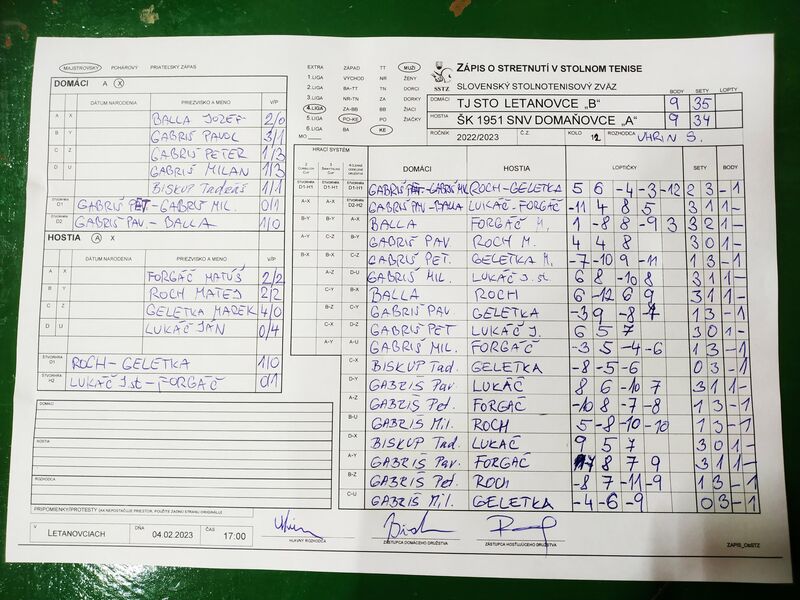 MAJSTROVSKÝ POHÁROVÝ PRIATEĽSKÝ ZÁPAS
DOMÁCI A X
DÁTUM NARODENIA PRIEZVISKO A MENO V/P
A X BALLA JOZEF 2/0
B Y GABRIŠ PAVOL 3/1
C Z GABRIŠ PETER 1/3
D U GABRIŠ MILAN 1/3
BISKUP Tadeáš 1/1
ŠTVORHRA D1 GABRIŠ PET-GABRIŠ MIL. 0/1
ŠTVORHRA D2 GABRIŠ PAV.-BALLA 1/0
HOSTIA A X
DÁTUM NARODENIA PRIEZVISKO A MENO V/P
A X FORGÁČ MATÚŠ 2/2
B Y ROCH MATEJ 2/2
C Z GELETKA MAREK 4/0
D U LUKÁČ JÁN 0/4
ŠTVORHRA D1 ROCH-GELETKA 1/0
ŠTVORHRA H2 LUKÁČ J.st-FORGÁČ 0/1
DOMÁCI
HOSTIA
ROZHODCA
PRIPOMIENKY/PROTESTY (AK NEPOSTAČUJE PRIESTOR, POUŽITE ZADNÚ STRANU ORIGINÁLU)
V LETANOVCIACH DŇA 04.02.2023 ČAS 17:00
HLAVNÝ ROZHODCA
ZÁSTUPCA DOMÁCEHO DRUŽSTVA
ZÁSTUPCA HOSŤUJÚCEHO DRUŽSTVA
ZAPIS_ObSTZ
EXTRA ZÁPAD TT MUŽI
1.LIGA VÝCHOD NR ŽENY
2.LIGA BA-TT TN DORCI
3.LIGA NR-TN ZA DORKY
4.LIGA ZA-BB BB ŽIACI
5.LIGA PO-KE PO ŽIAČKY
6.LIGA BA KE
MO
SSTZ
ZÁPIS O STRETNUTÍ V STOLNOM TENISE
SLOVENSKÝ STOLNOTENISOVÝ ZVÄZ BODY SETY LOPTY
DOMÁCI TJ STO LETANOVCE „B" 9 35
HOSTIA ŠK 1951 SNV DOMAŇOVCE „A" 9 34
ROČNÍK 2022/2023 Č.Z. KOLO 12 ROZHODCA UHRIN S.
HRACÍ SYSTÉM
DOMÁCI HOSTIA LOPTIČKY SETY BODY
D1-H1 D1-H1 D1-H1 GABRIŠ PET-GABRIŠ MIL ROCH-GELETKA 5 6 -4 -3 -12 2 3 - 1
A-X A-X D2-H2 GABRIŠ PAV-BALLA LUKÁČ-FORGÁČ -11 4 8 5 3 1 1 -
B-Y B-Y A-X BALLA FORGÁČ M. 1 -8 8 -9 3 3 2 1 -
A-Y C-Z B-Y GABRIŠ PAV. ROCH M. 4 4 8 3 0 1 -
B-X B-X C-Z GABRIŠ PET. GELETKA M. -7 -10 9 -11 1 3 - 1
A-Z D-U GABRIŠ MIL. LUKÁČ J. st. 6 8 -10 8 3 1 1 -
C-Y B-X BALLA ROCH 6 -12 6 9 3 1 1 -
B-Z C-Y GABRIŠ PAV. GELETKA
C-X D-Z GABRIŠ PET LUKÁČ J. 6 5 7 3 0 1 -
A-Y A-U GABRIŠ MIL. FORGÁČ -3 5 -4 -6 1 3 - 1
C-X BISKUP Tad. GELETKA -8 -5 -6 0 3 - 1
D-Y GABRIŠ Pav. LUKÁČ 8 6 -10 7 3 1 1 -
A-Z GABRIŠ Pet. FORGÁČ -10 8 -7 -8 1 3 - 1
B-U GABRIŠ Mil. ROCH 5 -8 -10 -10 1 3 - 1
D-X BISKUP Tad. LUKÁČ 9 5 7 3 0 1 -
A-Y GABRIŠ Pav. FORGÁČ 8 7 9 3 1 1 -
B-Z GABRIŠ Pet. ROCH -8 7 -11 -9 1 3 - 1
C-U GABRIŠ Mil. GELETKA -4 -6 -9 0 3 - 1